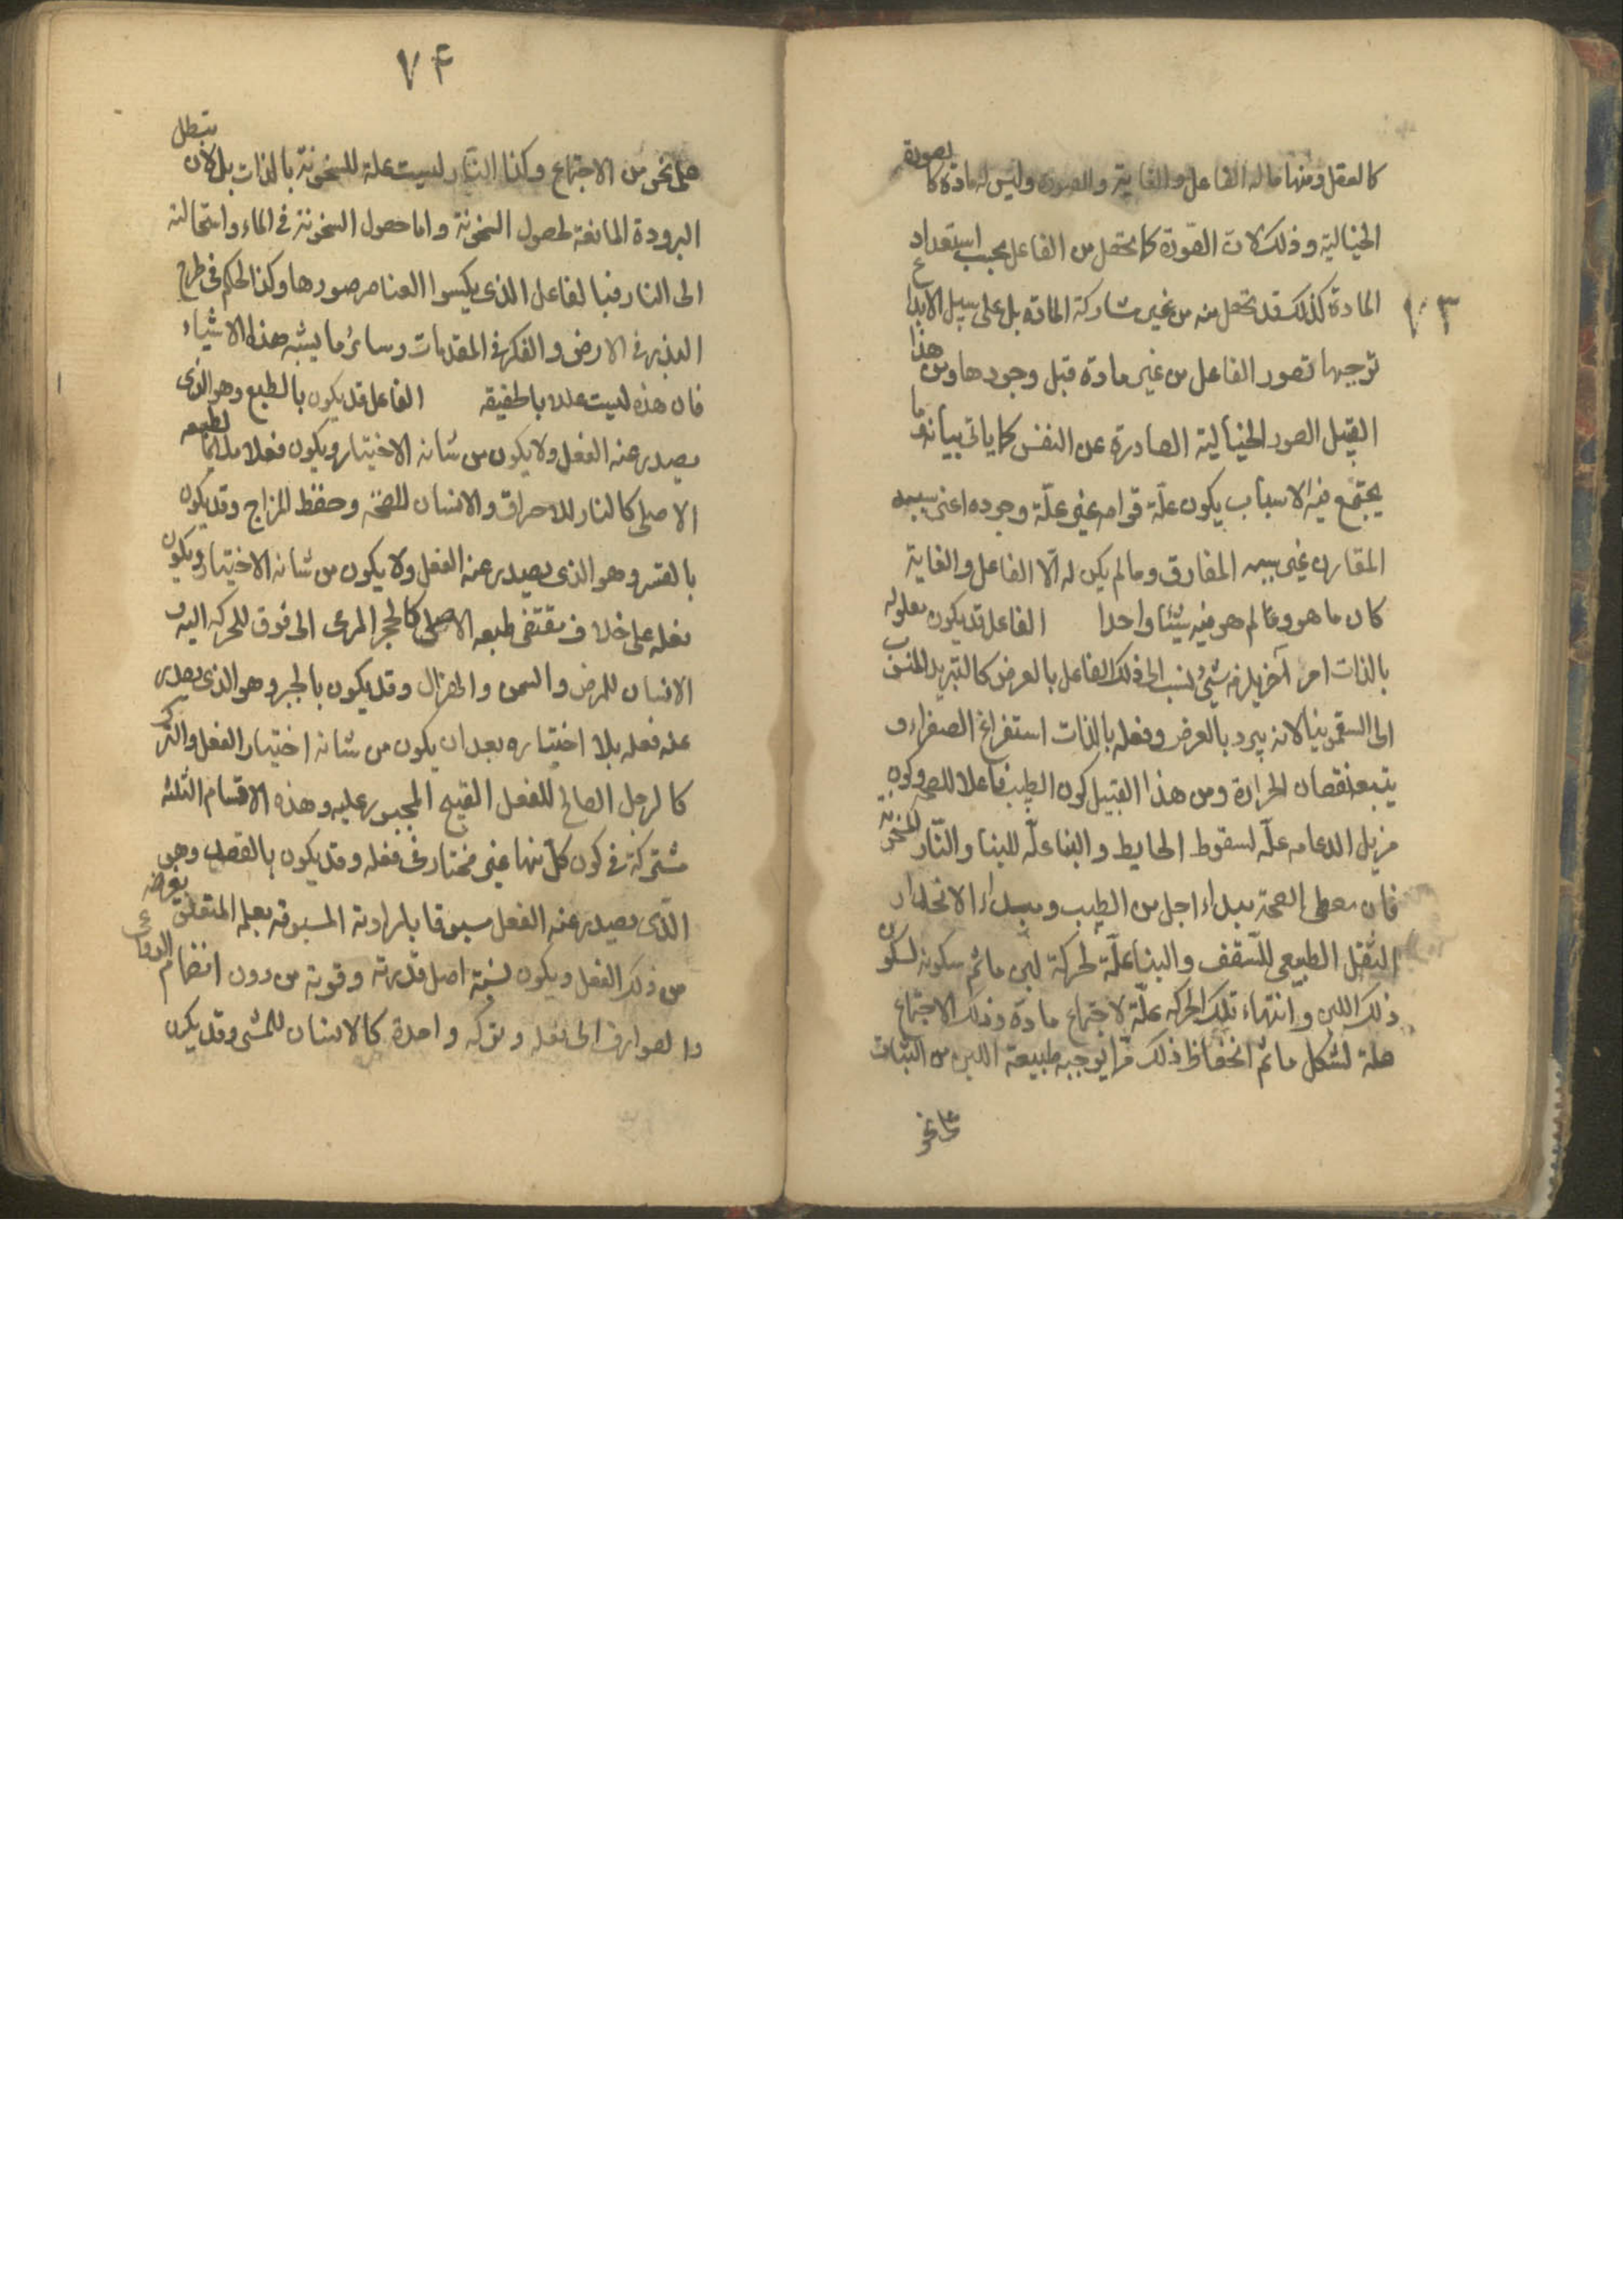 كالعقل ومنها ما له الفاعل والغاية والصورة وليس له مادة كالصورة
الخيالية وذلك لان الصورة كما تحصل من الفاعل بحسب استعداد
المادة كذلك قد تحصل منه من غير مشاركة المادة بل على سبيل الابداع
توجبها تصور الفاعل من غير مادة قبل وجودها ومن هذا
القبيل الصور الخيالية الصادرة عن النفس كما ياتى بيانه وما
يجتمع فيه الاسباب يكون علّة قوامه غير علّة وجوده اعنى سببه
المقارن غير سببه المفارق وما لم يكن له الّا الفاعل والغاية
كان ما هو ولم هو فيه شيئا واحدا الفاعل قد يكون معلوله
بالذات امر آخر يلزمه شئ ينسب الى ذلك الفاعل بالعرض كالتبريد المنسوب
الى السقمونيا لانه يبرد بالعرض وفعله بالذات استفراغ الصفراء و
يتبعه نقصان الحرارة ومن هذا القبيل كون الطبيب فاعلا للصحة وكون
مزيل الدعامه علّه لسقوط الحايط والبنا علّه للبنا والنّار للسخونة
فان معطى الصحة مبداء اجل من الطبيب ومبداء الانحدار
الثقل الطبيعى للسّقف والبنا علّة لحركة لبن ما ثم سكونه لسكون
ذلك اللبن وانتهاء تلك الحركه علّة لاجتماع مادة وذلك الاجتماع
علة لشكل ما ثم انحفاظ ذلك مما يوجبه طبيعة اللبن من الثبات
على نحو
۱۰۳
۷۴
على نحو من الاجتماع وكذا النار ليست علة للسخونة بالذات بل لان تبطل
البرودة المانعة لحصول السخونة واما حصول السخونة فى الماء واستحالته
الى النار فبالفاعل الذى يكسوا العناصر صورها وكذا الحكم فى طرح
البذر فى الارض والفكر فى المقدمات وسائر ما يشبه هذه الاشياء
فان هذه ليست عللا بالحقيقه الفاعل قد يكون بالطبع وهو الذى
يصدر عنه الفعل ولا يكون من شانه الاختيار ويكون فعلا ملائما لطبعه
الاصلى كالنار للاحراق والانسان للصحّة وحفظ المزاج وقد يكون
بالقسر وهو الذى يصدر عنه الفعل ولا يكون من شانه الاختيار ويكون
فعله على خلاف مقتضى طبعه الاصلى كالحجر المرمى الى فوق للحركه اليه و
الانسان للمرض والسمن والهزال وقد يكون بالجبر وهو الذى يصدر
عنه فعله بلا اختياره بعد ان يكون من شانه اختيار الفعل والترك
كالرجل الصالح للفعل القبيح المجبور عليه وهذه الاقسام الثلثه
مشتركة فى كون كلّ منها غير مختار فى فعله وقد يكون بالقصد وهو
الّذى يصدر عنه الفعل مسبوقا بارادته المسبوقه بعلمه المتعلق بغرضه
من ذلك الفعل ويكون نسبة اصل قدرته وقوته من دون انضمام الدواعى
والصوارف الى فعله وتركه واحدة كالانسان للمشى وقد يكون